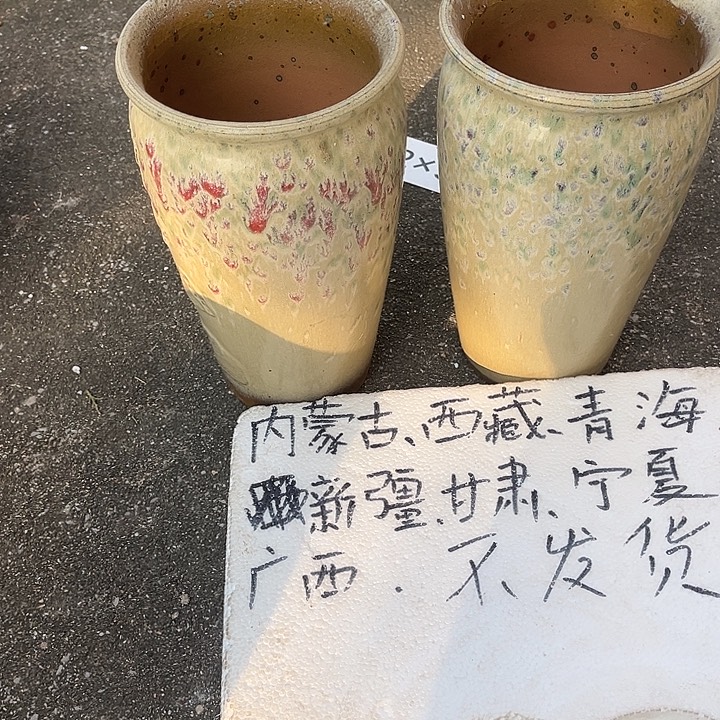 内蒙古、西藏、青海、
新疆、甘肃、宁夏
广西.不发货